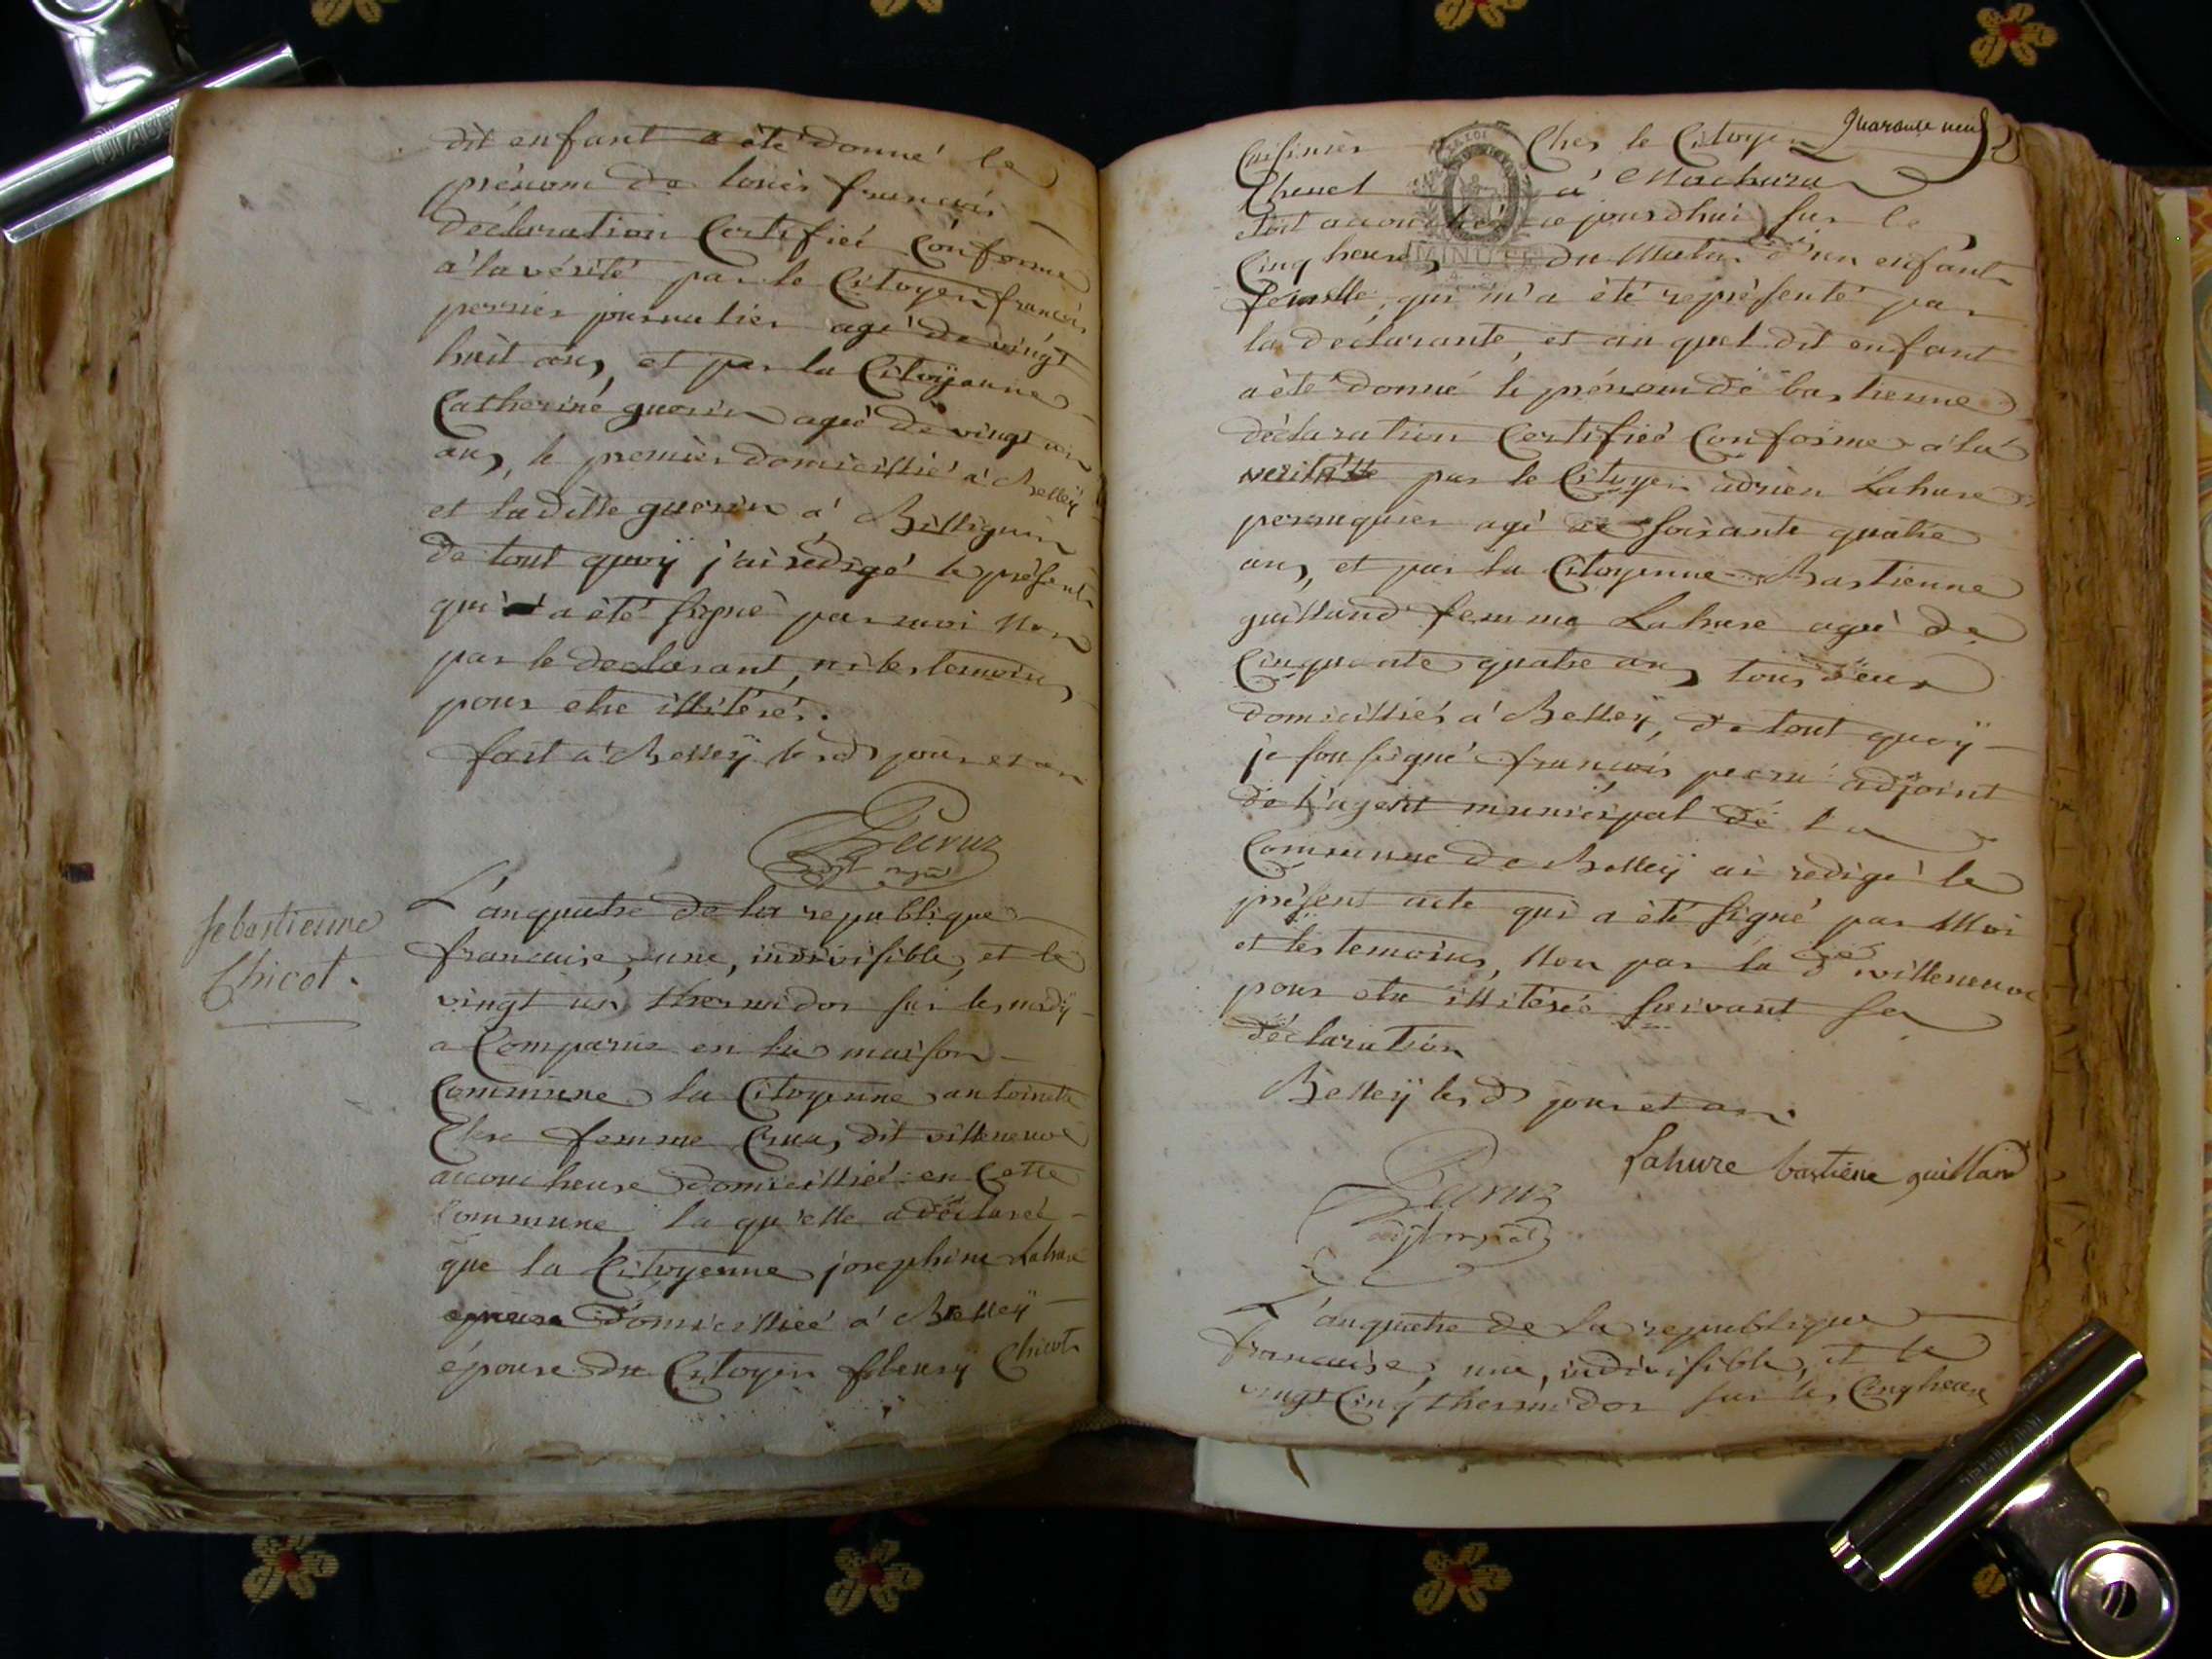 dit enfant a été donné le
prénom de louis francois
déclaration Certifieé Conforme
a la vérité par le Citoyen francois
perrier journalier agé de vingt
huit ans, et par la Citoÿenne
Catherine guerin ageé de vingt un
ans, le premier domicillié a Belleÿ
et la ditte guerin a Billignin
de tout quoÿ j'ai rédigé le présent
qui a été signé par moi Non
par le declarant, ni les temoins
pour etre illitérés.
fait a Belleÿ les d jour et an
Pecruz
adjt
Sebastienne
Chicot.
L'an quatre de la republique
francaise, une, indivisible, et le
vingt un thermidor sur les midÿ
a Comparue en la maison
Commune la Citoyenne antoinette
femme Cruas, dit villeneuve
accoucheuse domicilliée en Cette
Commune, la qu'elle a déclareé
que la Citoyenne josephine Lahure
domicilliée a Belleÿ
épouse du Citoyen fleury Chicot
quarante neuf
Cuisinier Ches le Citoyen
a Machura
etoit accouchée ce jourdhui sur le
Cinq heures du Matin d'un enfant
MINUTE
femelle, qui m'a été représenté par
la declarante, et au quel dit enfant
a été donné le prénom de bastienne
déclaration Certifieé Conforme a la
verité par le Citoyen adrien Lahure
perruquier agé de soixante quatre
ans, et par la Citoyenne Bastienne
guilland femme Lahure ageé de
Cinquante quatre ans tous deux
domicilliés a Belleÿ, de tout quoÿ
je sousigné francois pecru adjoint
de l'agent municipal de la
Commune de Belleÿ ai redigé le
présent acte qui a été signé par Moi
et les temoins, Non par la de villeneuve
pour etre illitéreé suivant sa
déclaration
Belleÿ les d jour et an.
Lahure bastiene guilland
Pecruz
adjt
L'an quatre de la republique
francaise, une, indivisible, et le
vingt Cinq thermidor sur les Cinq heures